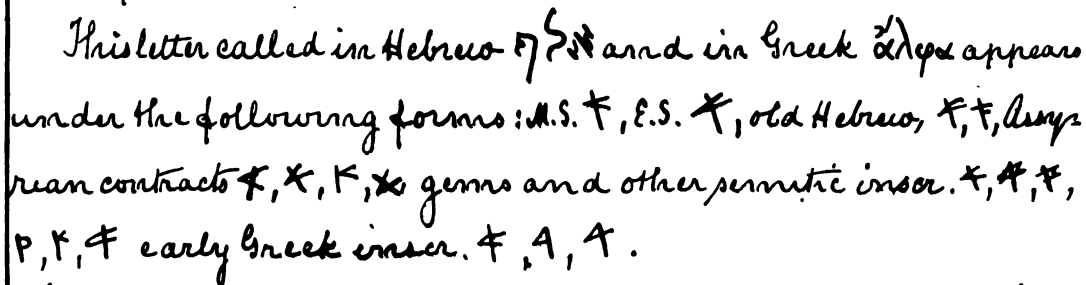 This letter called in Hebrew אלף and in Greek ἄλφα appears
under the following forms: M.S. , E.S. , old Hebrew, , , Assy=
rian contracts , , , gems and other semitic inscr. , , ,
, , early Greek inscr. , A, .